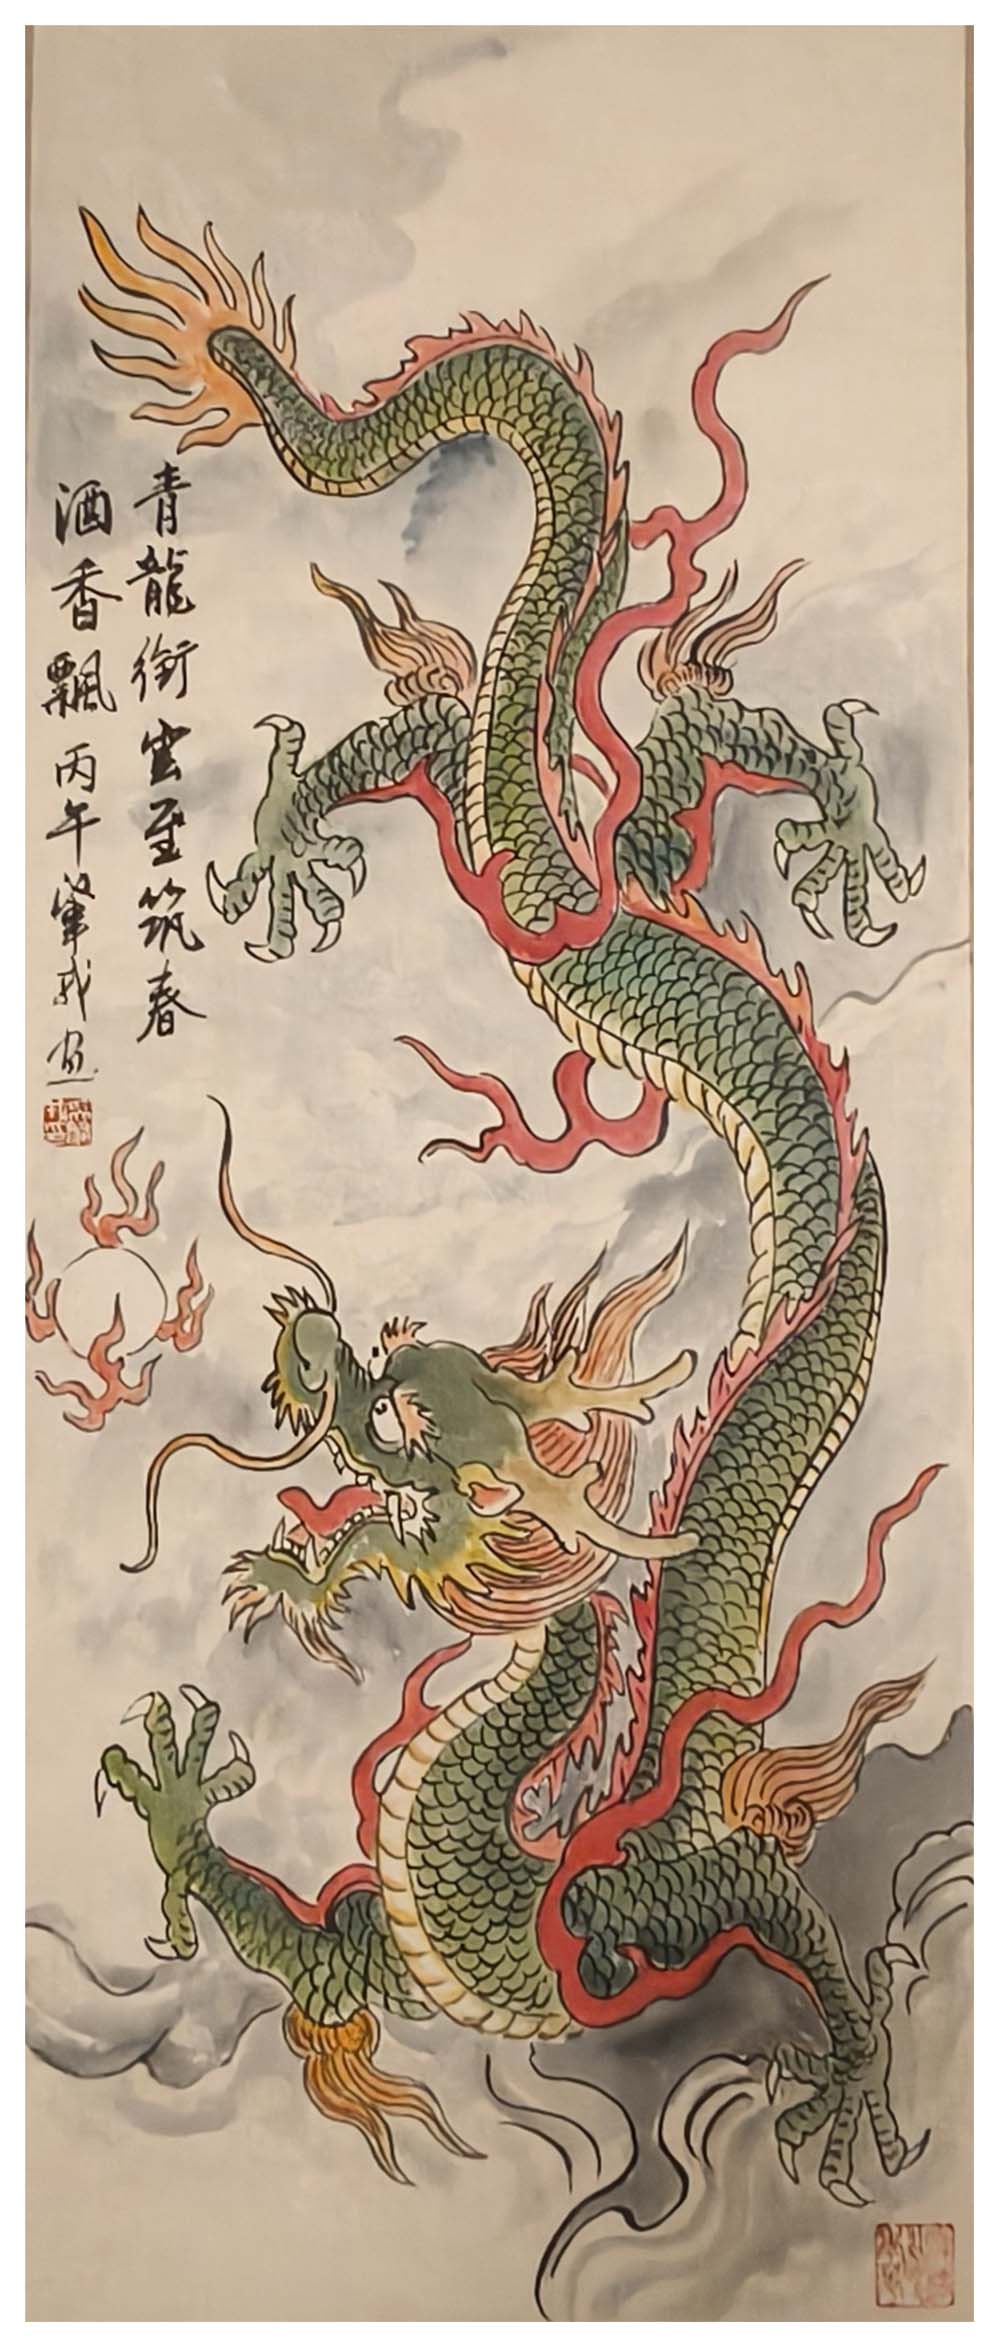 青龍銜雲至筑春
酒香飄 丙午肇成画